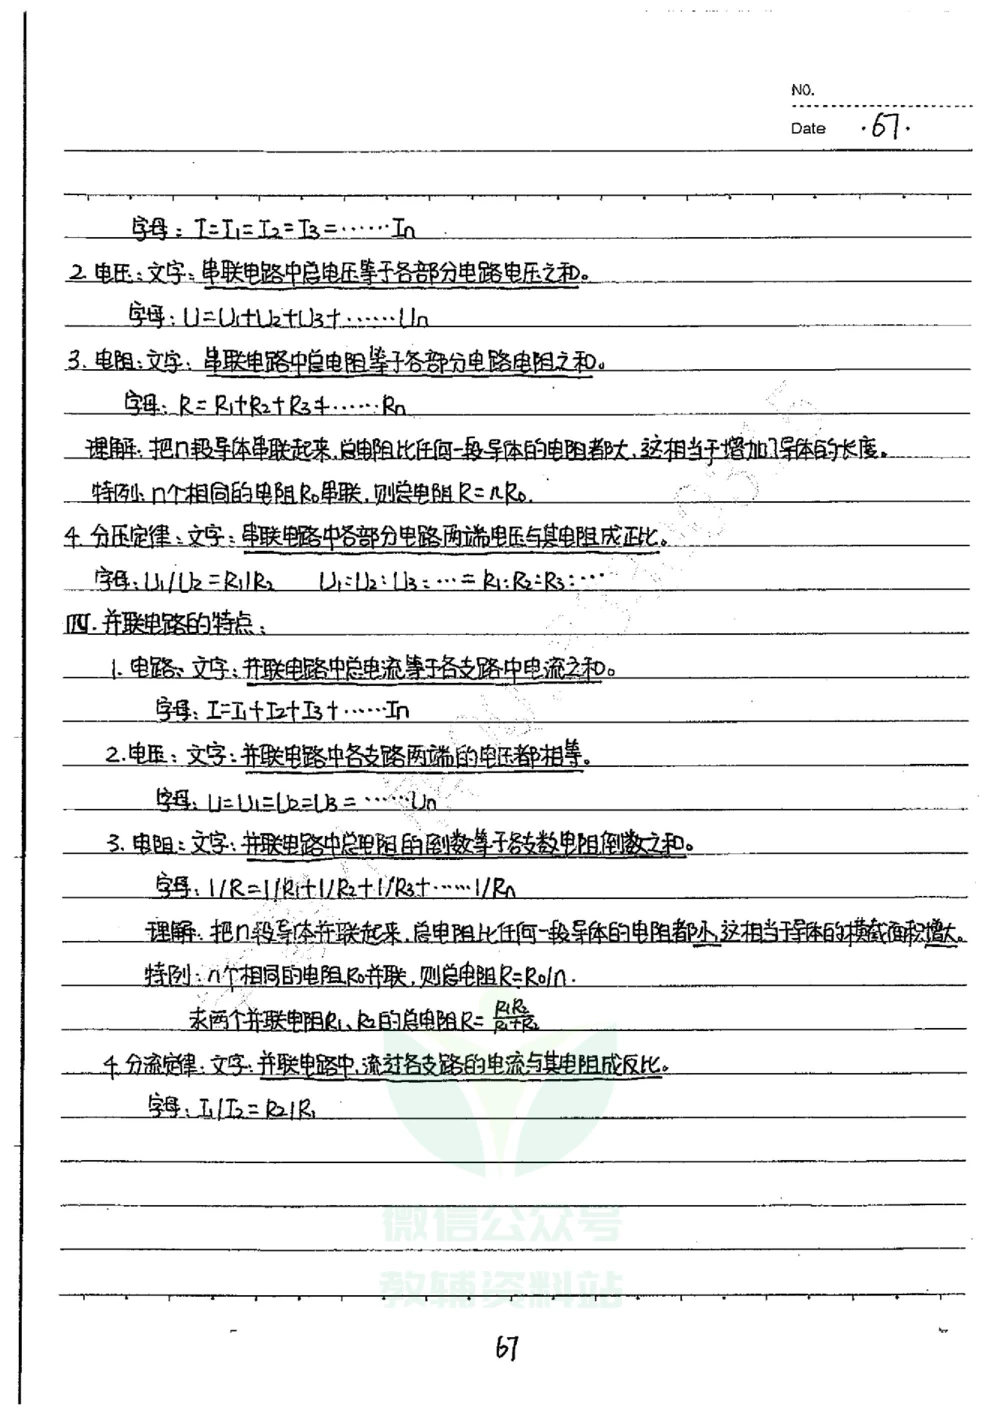 NO.
Date ·67·
字母：I=I1=I2=I3=……In
2.电压：文字：串联电路中总电压等于各部分电路电压之和。
字母：U=U1+U2+U3+……Un
3.电阻：文字：串联电路中总电阻等于各部分电路电阻之和。
字母：R=R1+R2+R3+……Rn
理解：把n段导体串联起来，总电阻比任何一段导体的电阻都大，这相当于增加了导体的长度。
特例：n个相同的电阻R0串联，则总电阻R=nR0.
4.分压定律：文字：串联电路中各部分电路两端电压与其电阻成正比。
字母：U1/U2=R1/R2 U1:U2:U3:…=R1:R2:R3:…
四.并联电路的特点：
1.电路：文字：并联电路中总电流等于各支路中电流之和。
字母：I=I1+I2+I3+……In
2.电压：文字：并联电路中各支路两端的电压都相等。
字母：U=U1=U2=U3=……Un
3.电阻：文字：并联电路中总电阻的倒数等于各支数电阻倒数之和。
字母：1/R=1/R1+1/R2+1/R3+……1/Rn
理解：把n段导体并联起来，总电阻比任何一段导体的电阻都小，这相当于导体的横截面积增大。
特例：n个相同的电阻R0并联，则总电阻R=R0/n.
求两个并联电阻R1、R2的总电阻R=R1R2/R1+R2
4.分流定律：文字：并联电路中，流过各支路的电流与其电阻成反比。
字母：I1/I2=R2/R1
微信公众号
教辅资料站
67